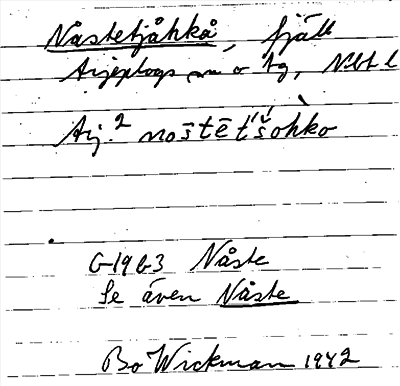 Nåstetjåhkå, fjäll
Arjeplogs sn o tg, Nbt l
Arj.² noštēt́šohko
G1963 Nåste
Se även Nåste
Bo Wickman 1942